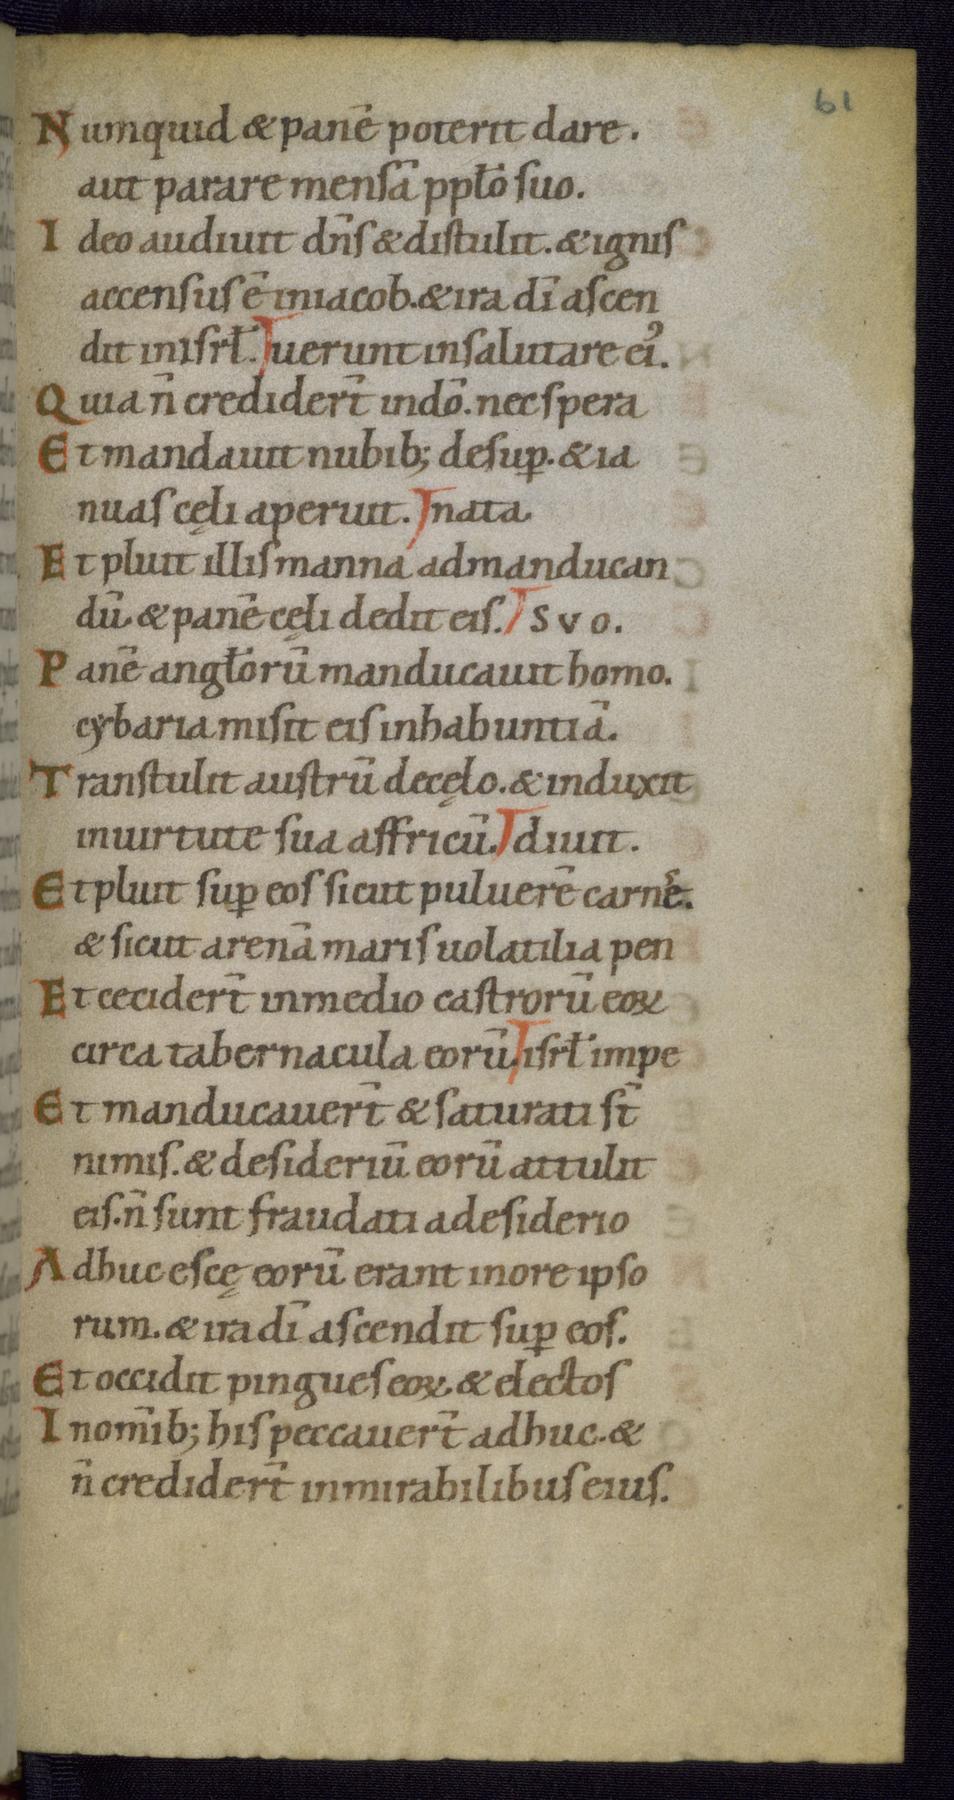 61
Numquid & panē poterit dare.
aut parare mensā ppło suo.
Ideo audiuit dn̄s & distulit. & ignis
accensus ē iniacob. & ira dī ascen
dit inisrł. uerunt insalutare ei᾽.
Quia n̄ credider̄t indō. nec spera
Et mandauit nubib; desup̱. & ia
nuas cęli aperuit. nata
Et pluit illis manna admanducan
dū & panē cęli dedit eis. SVO.
Panē angłorū manducauit homo.
cẏbaria misit eis inhabuntiā.
Transtulit austrū decęlo. & induxit
inuirtute sua affricū. diuit.
Et pluit sup̱ eos sicut puluerē carnē.
& sicut arenā maris uolatilia pen
Et cecider̄t inmedio castrorū eoꝝ
circa tabernacula eorū. isrł impe
Et manducauer̄t & saturati st̄
nimis. & desideriū eorū attulit
eis. n̄ sunt fraudati adesiderio
Adhuc escę eorū erant inore ipso
rum. & ira dī ascendit sup̱ eos.
Et occidit pingues eoꝝ & electos
Inom̄ib; his peccauer̄t adhuc. &
n̄ credider̄t inmirabilibus eius.